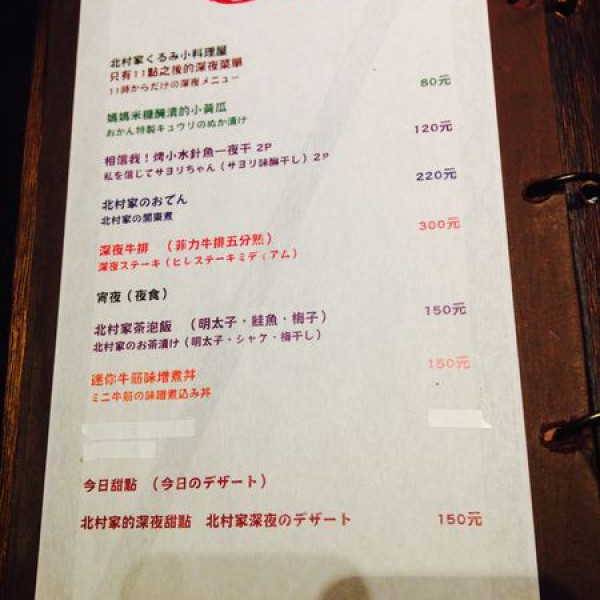 北村家くるみ小料理屋
只有11點之後的深夜菜單
11時からだけの深夜メニュー
媽媽米糠醃漬的小黃瓜 80元
おかん特製キュウリのぬか漬け
相信我！烤小水針魚一夜干 2P 120元
私を信じてサヨリちゃん（サヨリ味醂干し）2P
北村家のおでん 220元
北村家の関東煮
深夜牛排 （菲力牛排五分熟） 300元
深夜ステーキ（ヒレステーキミディアム）
宵夜（夜食）
北村家茶泡飯 （明太子・鮭魚・梅子） 150元
北村家のお茶漬け（明太子・シャケ・梅干し）
迷你牛筋味增煮丼 150元
ミニ牛筋の味噌煮込み丼
今日甜點 （今日のデザート）
北村家的深夜甜點 北村家深夜のデザート 150元